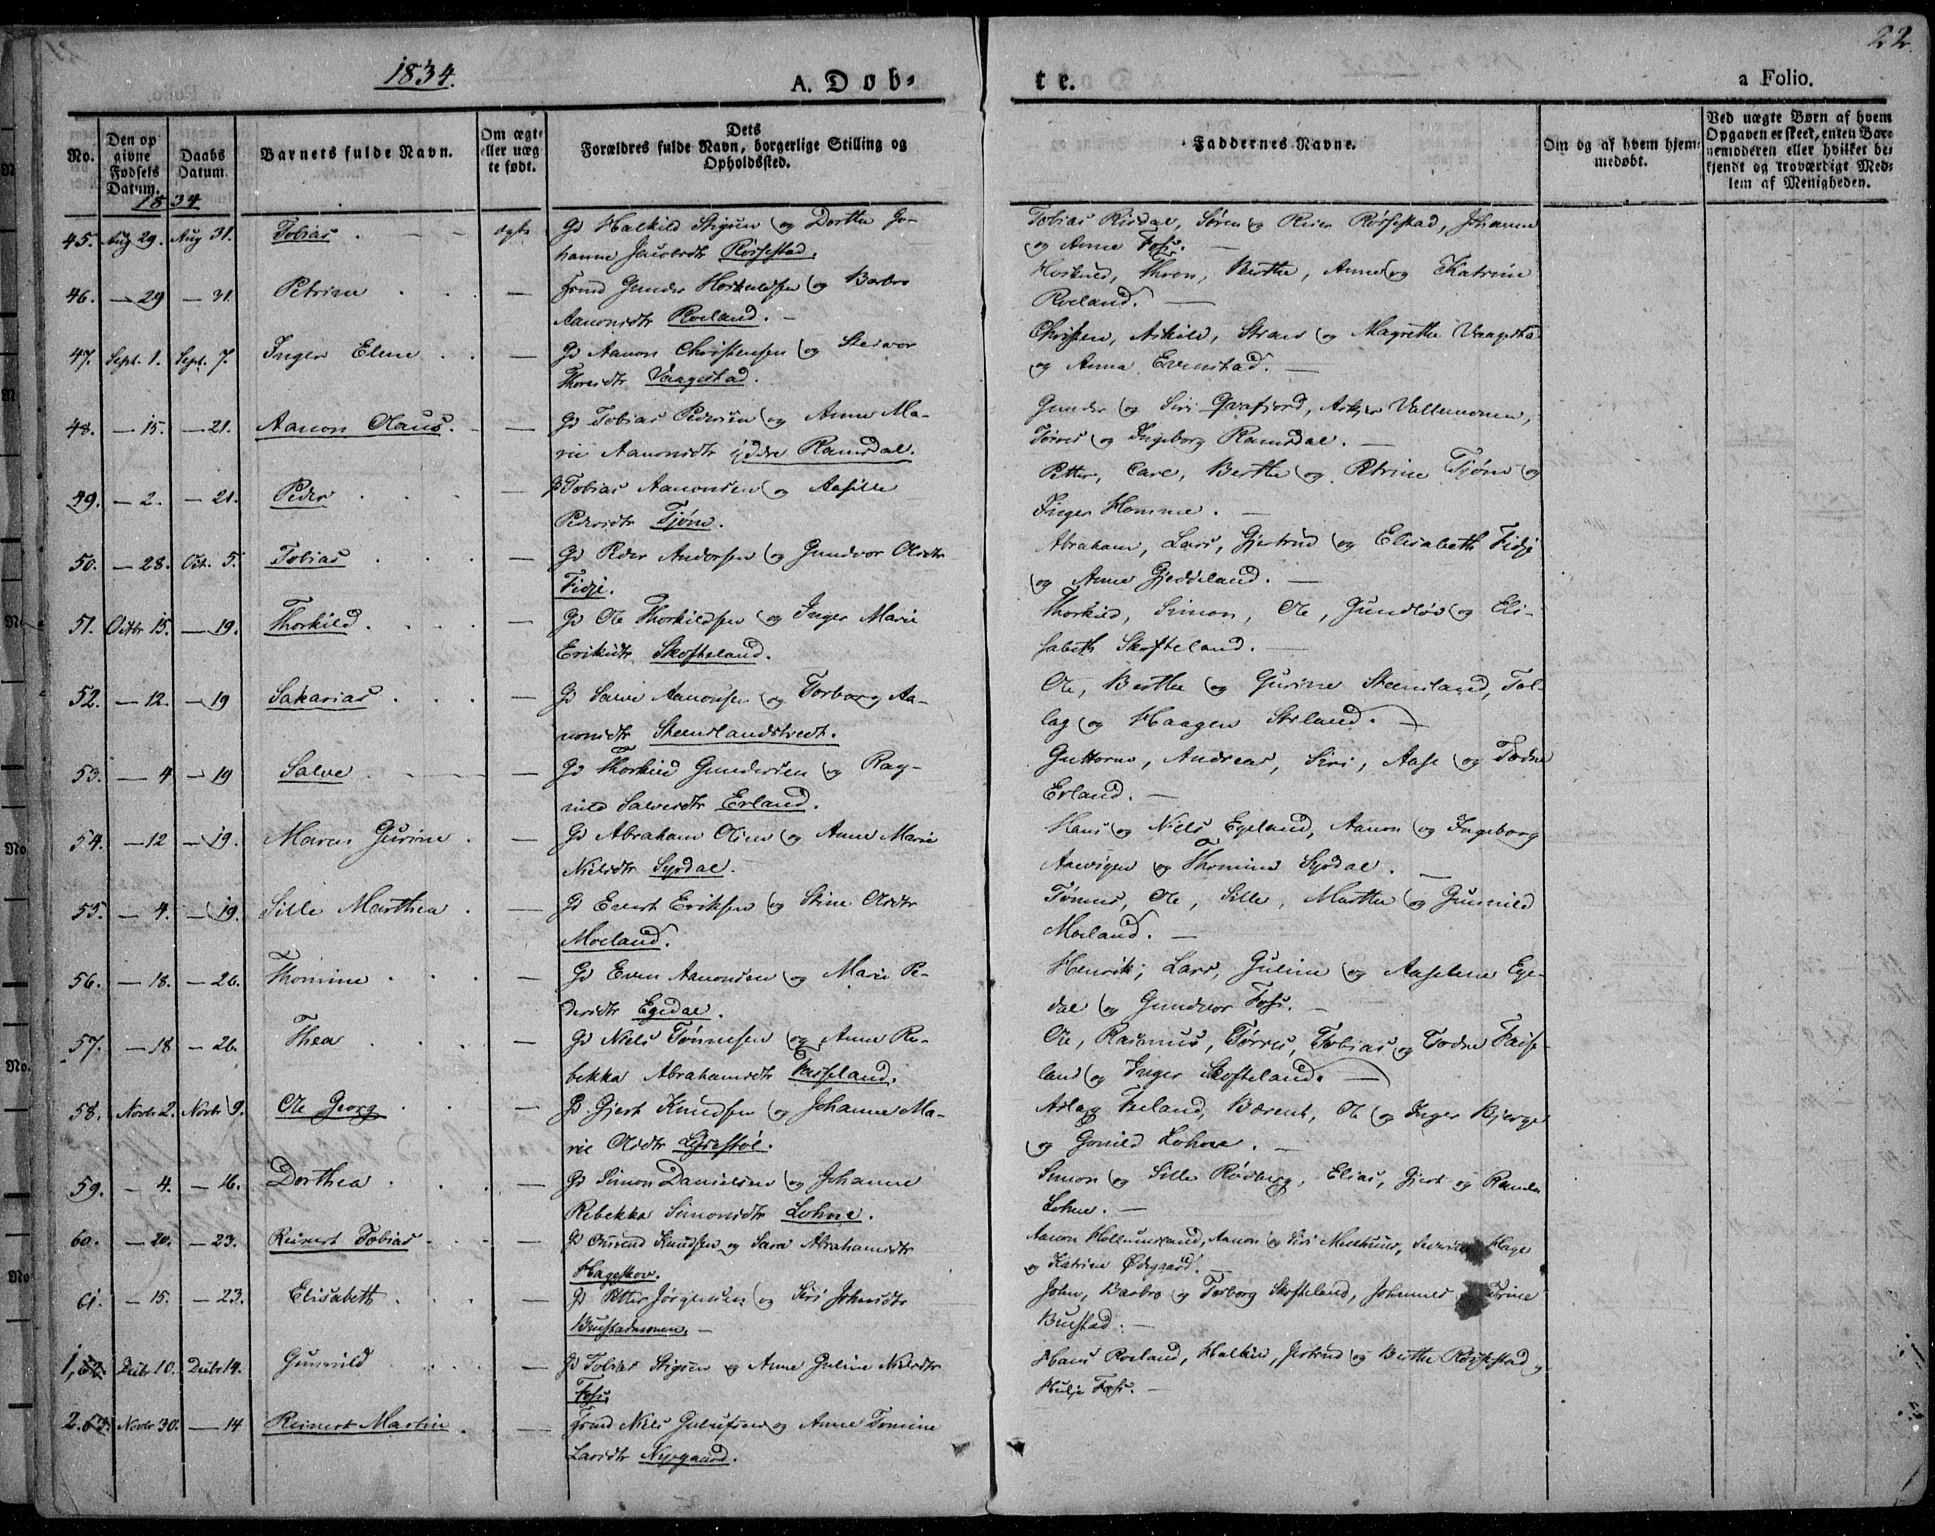 22.
1834.
A. Døb-
te.
a Folio.
No.
Den op
givne
Fødsels
Datum.
Daabs
Datum.
1834
Barnets fulde Navn.
Om ægt-
eller uæg
te født.
Dets
Forældres fulde Navn, borgerlige Stilling og
Opholdssted.
Faddernes Navne.
Om og af hvem hjem-
medøbt.
Ved uægte Børn af hvem
Opgaven er skeet, enten Bar-
nemoderen eller hvilket be-
kjendt og troværdigt Med-
lem af Menigheden.
45. Aug 29. Aug 31. Tobias ægte Gd Halkild Stigsen og Dorthe Jo-
hanne Jacobsdtr Røssestad.
Tobias Risdal, Søren og Reier Røssestad, Johanne
og Anne Foss.
46. — 29 — 31. Petrine — Gunder Horkildsen og Barbro
Aanonsdtr Roeland.
Thron, Berthe, Anne og Katrine
Roeland.
47. Sept. 1. Sept. 7. Inger Eline — Gd Aanon Christensen og Steivor
Thorsdtr Vaagestad.
Christen, Askild, og Magrethe Vaagesta
og Anna Evenstad.
48. — 15. — 21. Aanon Olaus. — Gd Tobias Pedersen og Anne Ma-
rie Aanonsdtr ydre Ramsdal.
Gunder og Siri Qvafjord, Vallemonen,
Tørres og Ingeborg Ramsdal.
49. — 2. — 21. Peder — Tobias Aanonsen og Aasille
Pedersdtr Tjøm.
Petter, Carl, Berthe og Petrine Tjøm og
Inger Homme.
50. — 28. Oct. 5. Tobias — Gd Peder Andersen og Gundvor Olsdtr
Fidje.
Abraham, Lars, Gjertrud og Elisabeth Fidje
og Anne Gjeddeland.
51. Octbr 15. — 19. Thorkild. — Gd Ole Thorkildsen og Inger Marie
Eriksdtr Skofteland.
Thorkild, Simon, Ole, Gundløv og Eli-
sabeth Skofteland.
52. — 12. — 19 Sakarias — Gd Salve Aanonsen og Torborg Aa-
nonsdtr Steenslandstredt.
Ole, Berthe og Gurine Steensland, Tol-
lag og Haagen Stiland.
53. — 4 — 19 Salve — Gd Thorkild Gundersen og Rag-
nild Salvesdtr Erland.
Guttorm, Andreas, Siri, Aase og Todne
Erland.
54. — 12 — 19. Maren Gurine — Gd Abraham Olsen og Anne Marie
Nielsdtr Syrdal.
Hans og Niels Egeland, Aanon og Ingeborg
og Thomine Syrdal.
55. — 4. — 19. Sille Marthea — Gd Evert Eriksen og Stine Olsdtr
Moeland.
Tønnes, Ole, Sille, Marthe og Gunnild
Moeland.
56. — 18. — 26. Thomine — Gd Even Aanonsen og Marie Pe-
dersdtr Egedal.
Henrik, Lars, Guline og Aaselene Ege-
dal og Gundvor Foss.
57. — 18 — 26. Thea — Gd Niels Tønnesen og Anne Re-
bekka Abrahamsdtr Faiseland.
Ole, Rasmus, Tørres, Tobias og Todne Faise-
land og Inger Skofteland.
58. Novbr 2. Novbr 9. Ole Georg — Gd Gjert Knudsen og Johanne Ma-
rie Olsdtr Lyrestøl.
Aslag Feeland, Bærent, Ole og Inger Bjerge
og Gonild Lohne.
59. — 4. — 16. Dorthea — Gd Simon Danielsen og Johanne
Rebekka Simonsdtr Lohne.
Simon og Sille Rødberg, Elias, Gjert og Randi
Lohne.
60. — 20. — 23. Reinert Tobias — Gd Omund Knudsen og Sara Abrahamsdtr
Hageskov.
Aanon Hollumsland, Aanon og Siri Mushuus, Severine Hage
og Katrine Ødegaard.
61. — 15. — 23. Elisabeth — Gd Petter Jørgensen og Siri Johnsdtr
Bruustadmonen.
John, Barbro og Torborg Skofteland, Johannes Trine
Bruustad.
1, 62. Decbr 10. Decbr 14. Gunnild — Gd Tobias Stigsen og Anne Guline Nielsdtr
Foss.
Hans Roeland, Halkild, Jertrud og Berthe Røssestad og
Hulje Foss.
2. 63. Novbr 30. — 14 Reinert Martin — Niels Gulufsen og Anne Tomine
Larsdtr Nygaard.